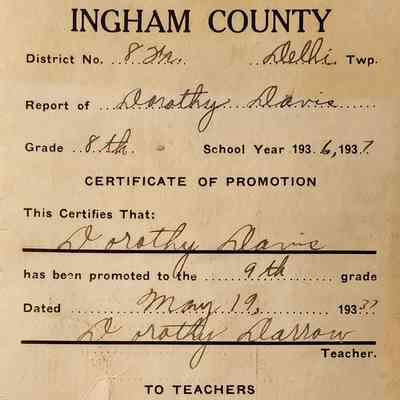 INGHAM COUNTY
District No. 8 Fr. Delhi Twp.
Report of Dorothy Davis
Grade 8th. School Year 193.6, 1937.
CERTIFICATE OF PROMOTION
This Certifies That:
Dorothy Davis
has been promoted to the 9th grade
Dated May 19, 1937
Dorothy Darrow
Teacher.
TO TEACHERS